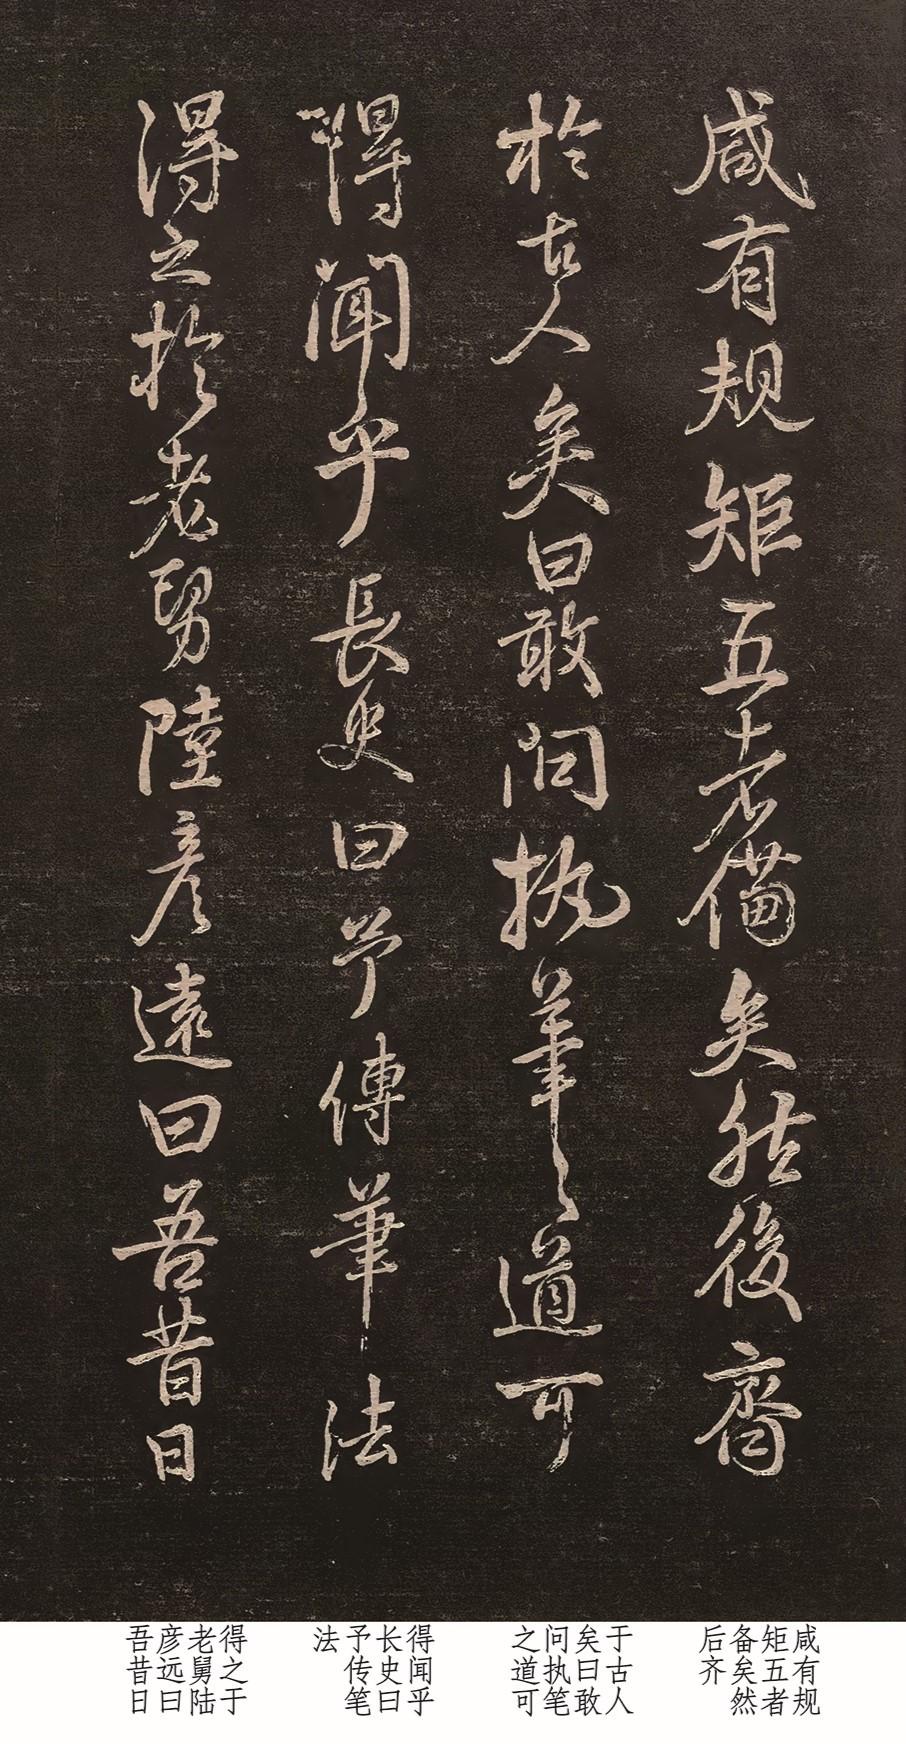 咸有规矩五者備矣然後齊
於古人矣曰敢问执筆之道可
得闻乎長史曰予傳筆法
得之於老舅陸彦遠曰吾昔日
咸有规
矩五者
备矣然
后齐
于古人
矣曰敢
问执笔
之道可
得闻乎
长史曰
予传笔
法
得之于
老舅陆
彦远曰
吾昔日